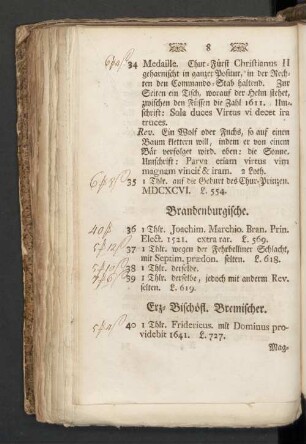 8
34 Medaille. Chur-Fürst Christianus II
geharnischt in ganzer Positur, in der Rech-
ten den Commando-Stab haltend. Zur
Seiten ein Tisch, worauf der Helm stehet,
zwischen den Füssen die Zahl 1611. Um-
schrift: Sola duces Virtus vi decet ira
truces.
Rev. Ein Wolf oder Fuchs, so auf einen
Baum klettern will, indem er von einem
Bär verfolget wird. oben: die Sonne.
Umschrift: Parva etiam virtus vim
magnam vincit & iram. 2 Loth.
35 1 Thlr. auf die Geburt des Chur-Prinzen.
MDCXCVI. L. 554.
Brandenburgische.
36 1 Thlr. Joachim. Marchio. Bran. Prin.
Elect. 1521. extra rar. L. 569.
37 1 Thlr. wegen der Fehrbelliner Schlacht,
mit Septim. prædon. selten. L. 618.
38 1 Thlr. derselbe.
39 1 Thlr. derselbe, jedoch mit anderm Rev.
selten. L. 619.
Erz-Bischöfl. Bremischer.
40 1 Thlr. Fridericus. mit Dominus pro-
videbit 1641. L. 727.
Mag-